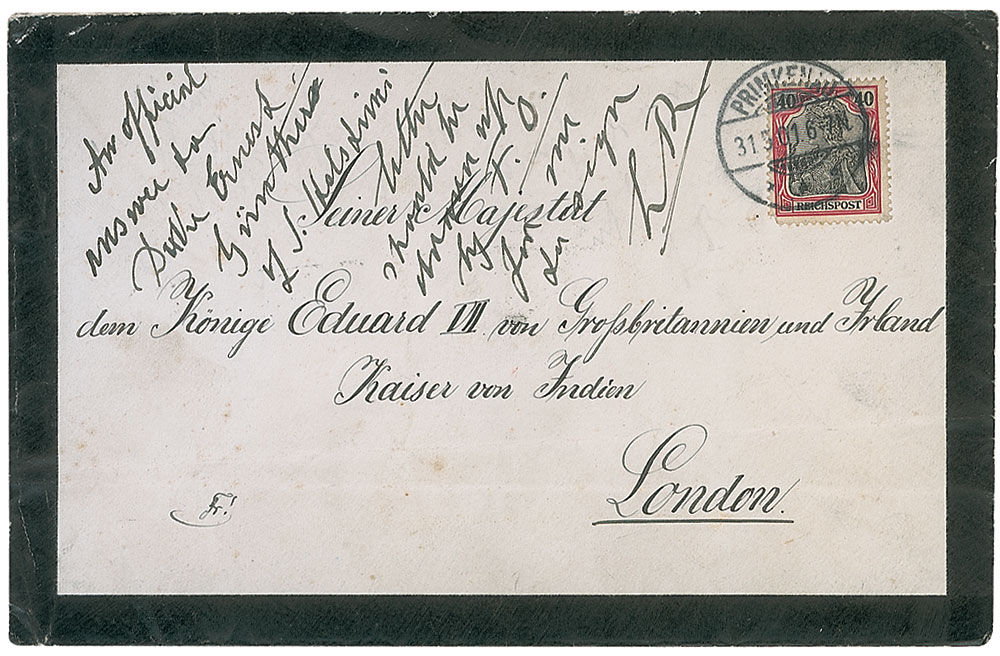 An official
answer to
Duke Ernest
Günther
of S. Holstein
letter
should be
drawn up
by F. O.
for me
to sign
PRIMKENAU
31.3.01.6-7N.
40 40
REICHSPOST
Seiner Majestät
dem Könige Eduard VII. von Großbritannien und Irland
Kaiser von Indien
London.
Fr!